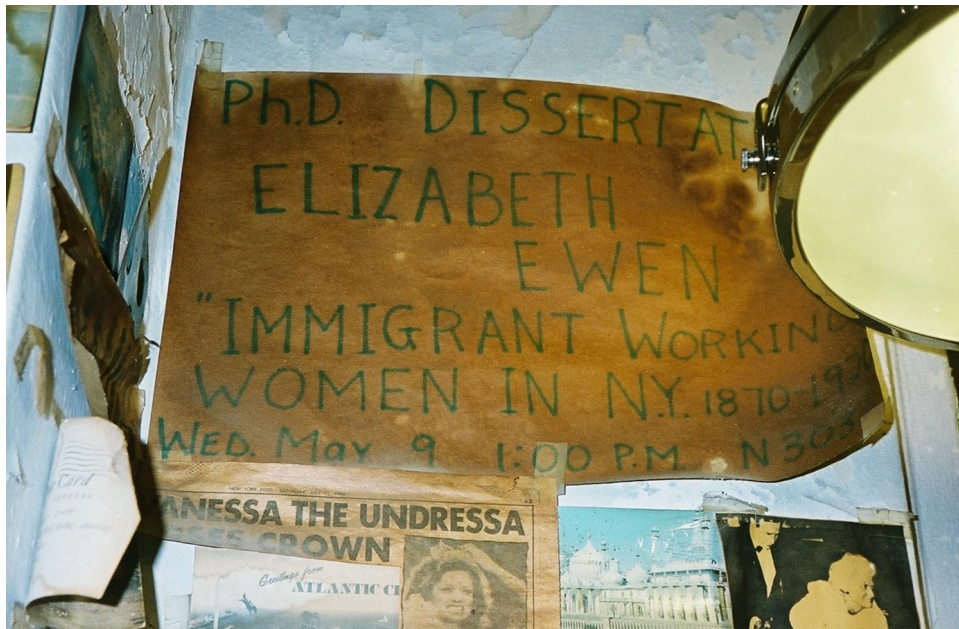 Ph.D. DISSERTAT
ELIZABETH
EWEN
"IMMIGRANT WORKING
WOMEN IN N.Y. 1870-192
WED. May 9 1:00 P.M. N303
NEW YORK POST, SATURDAY, JULY 21, 1984
ANESSA THE UNDRESSA
CROWN
Greetings from
ATLANTIC CI
Card